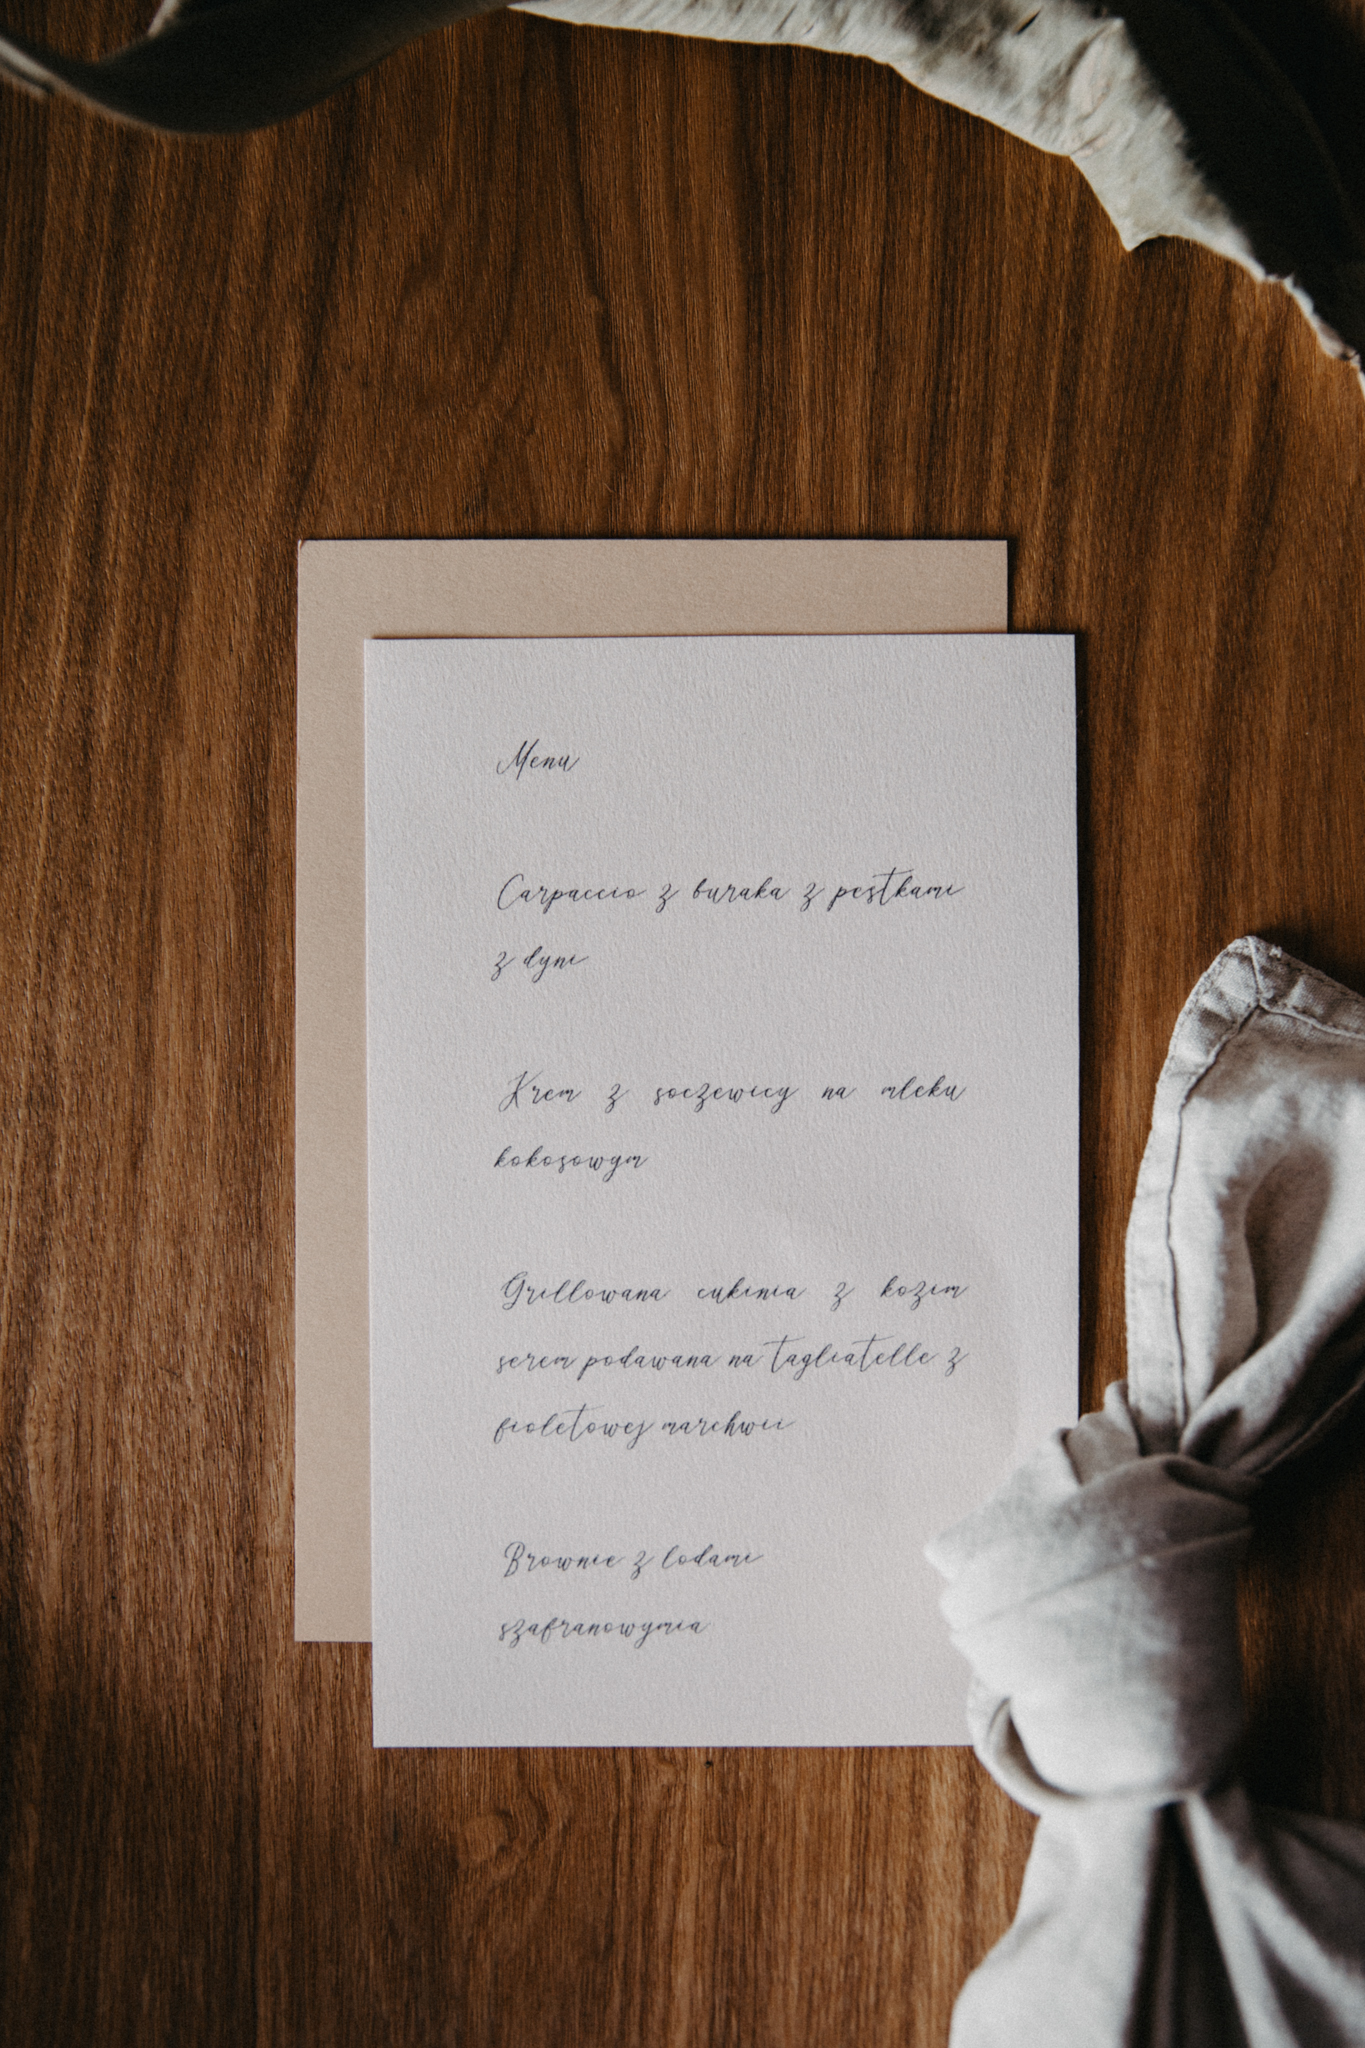 Menu
Carpaccio z buraka z pestkami
z dyni
Krem z soczewicy na mleku
kokosowym
Grillowana cukinia z kozim
serem podawana na tagliatelle z
fioletowej marchwii
Brownie z lodami
szafranowymia